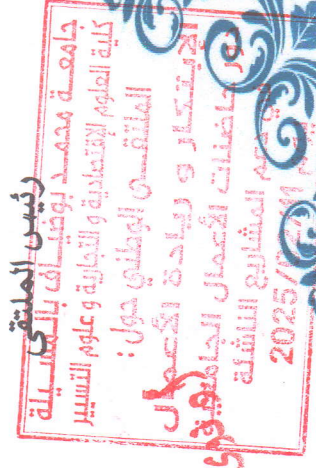 رئيس الملتقى
جامعة محمد بوضياف بالمسيلة
كلية العلوم الاقتصادية و التجارية و علوم التسيير
الملتقى الوطني حول :
الابتكار و ريادة الأعمال
دور حاضنات الأعمال الجامعية
في دعم المشاريع الناشئة
2025/